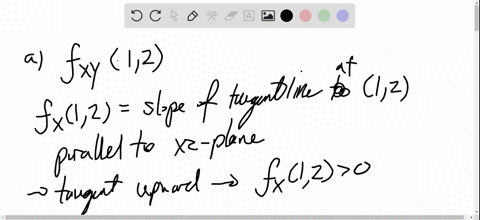 a) fxy (1,2)
fx(1,2) = slope of tangent line at (1,2)
parallel to xz-plane
→ tangent upward → fx(1,2)>0